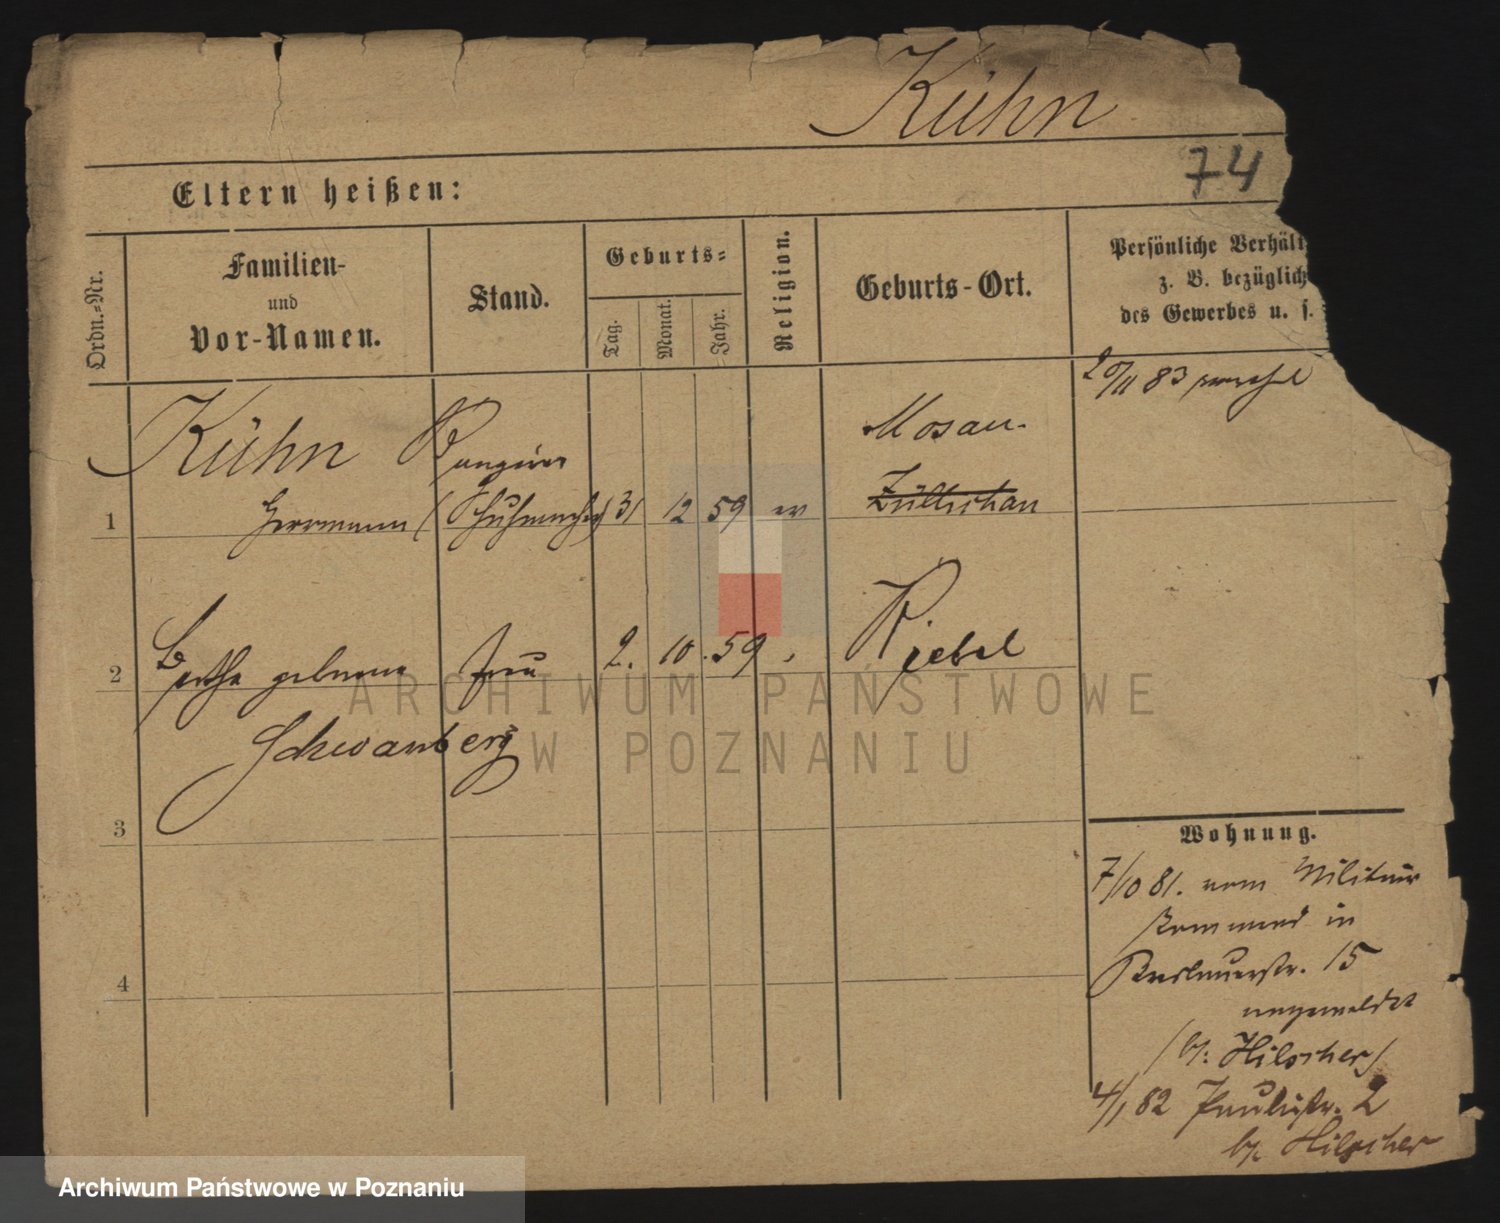 Kühn
74
Eltern heißen:
Ordn.-Nr.
Familien-
und
Vor-Namen.
Stand.
Geburts-
Tag.
Monat.
Jahr.
Religion.
Geburts-Ort.
Persönliche Verhält
z. B. bezüglich
des Gewerbes u. s.
20/11 83
Kühn
Mosau
1
Herrmann
(Schuhmacher)
31
12
59
ev
Züllichau
2
Bertha geborene
Frau
2.
10.
59
Kiebel
Schwanberg
3
4
Wohnung.
7/10 81. vom Militair
Kommand in
Breslauerstr. 15
angemeldet
(b/: Hilscher)
4/1 82 Paulistr. 2
b/. Hilscher
ARCHIWUM PAŃSTWOWE
W POZNANIU
Archiwum Państwowe w Poznaniu